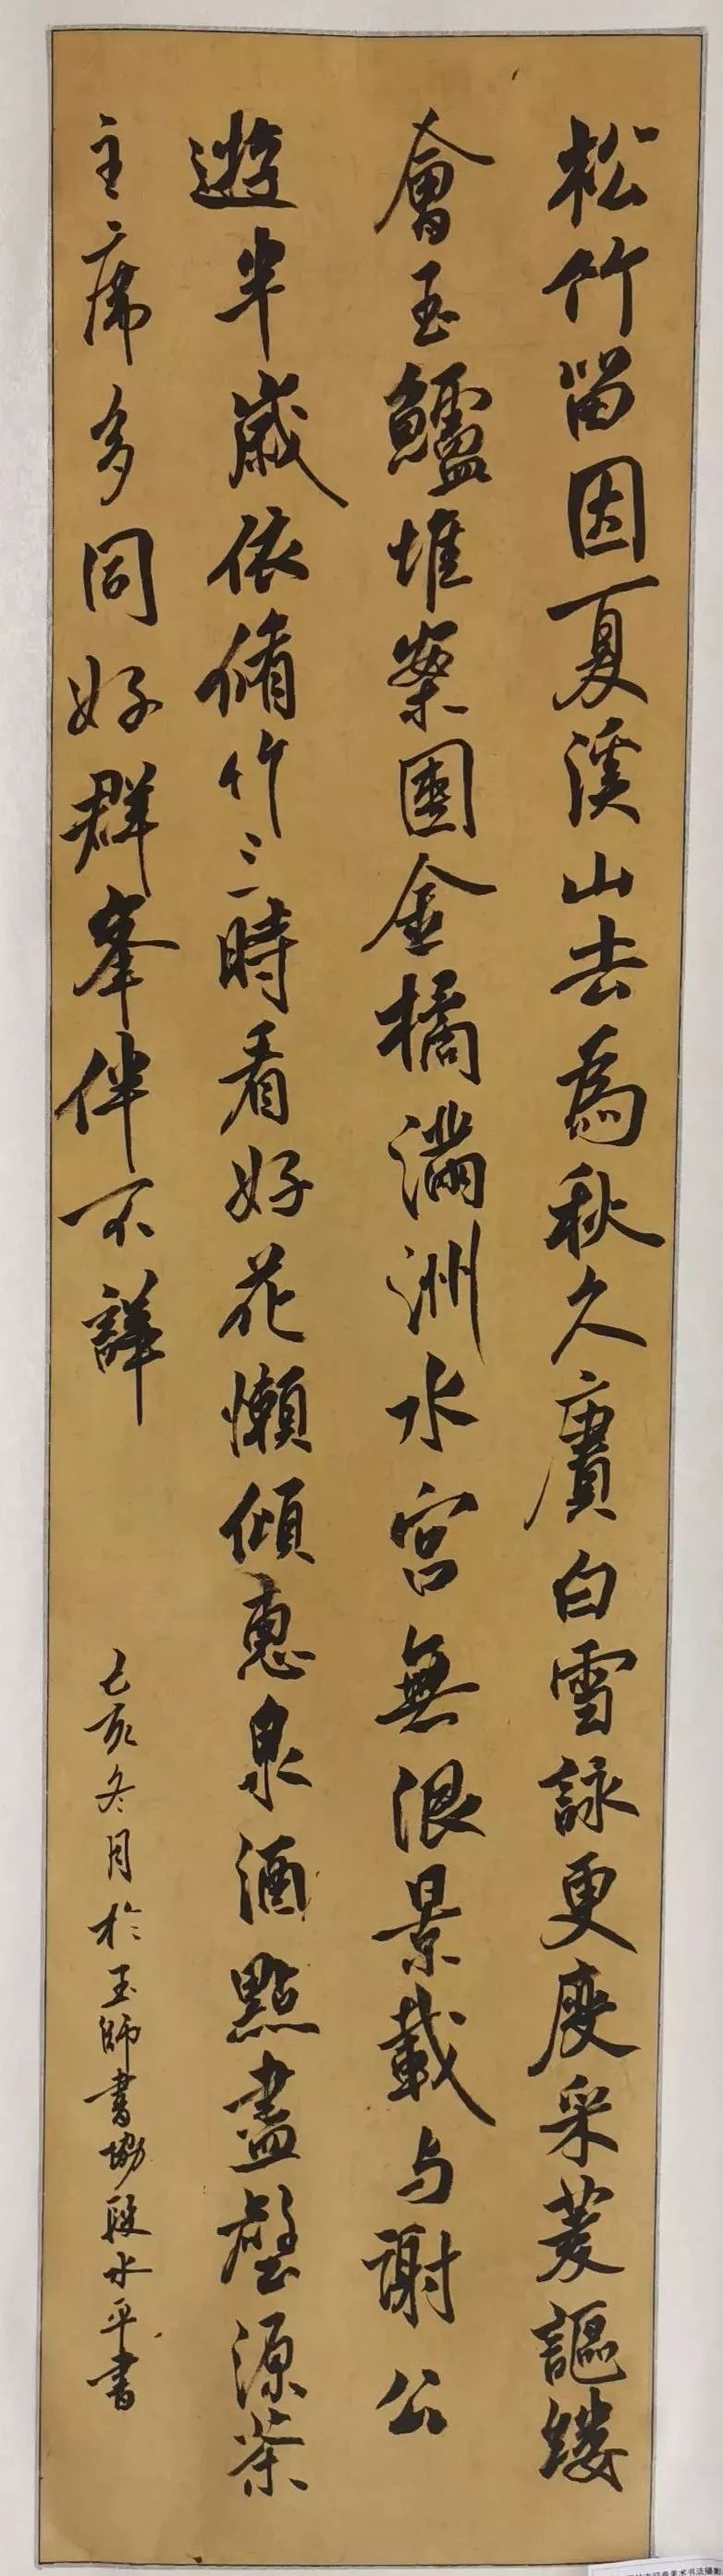 松竹留因夏溪山去為秋久賡白雪詠更度采菱謳縷
會玉鱸堆案團金橘滿洲水宮無限景載与謝公
遊半歲依脩竹三時看好花懶傾惠泉酒點盡壑源茶
主席多同好群峯伴不譁
己亥冬月於玉師書協段水平書